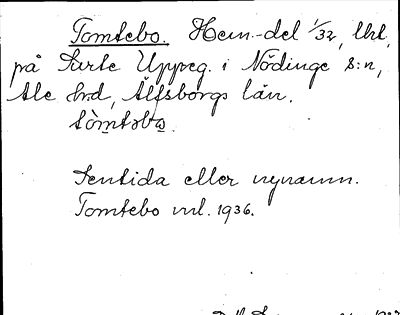 Tomtebo. Hem.-del 1/32, lht,
på Surte Uppeg. i Nödinge s:n,
Ale hrd, Älfsborgs län.
Sentida eller nynamn.
Tomtebo vul. 1936.